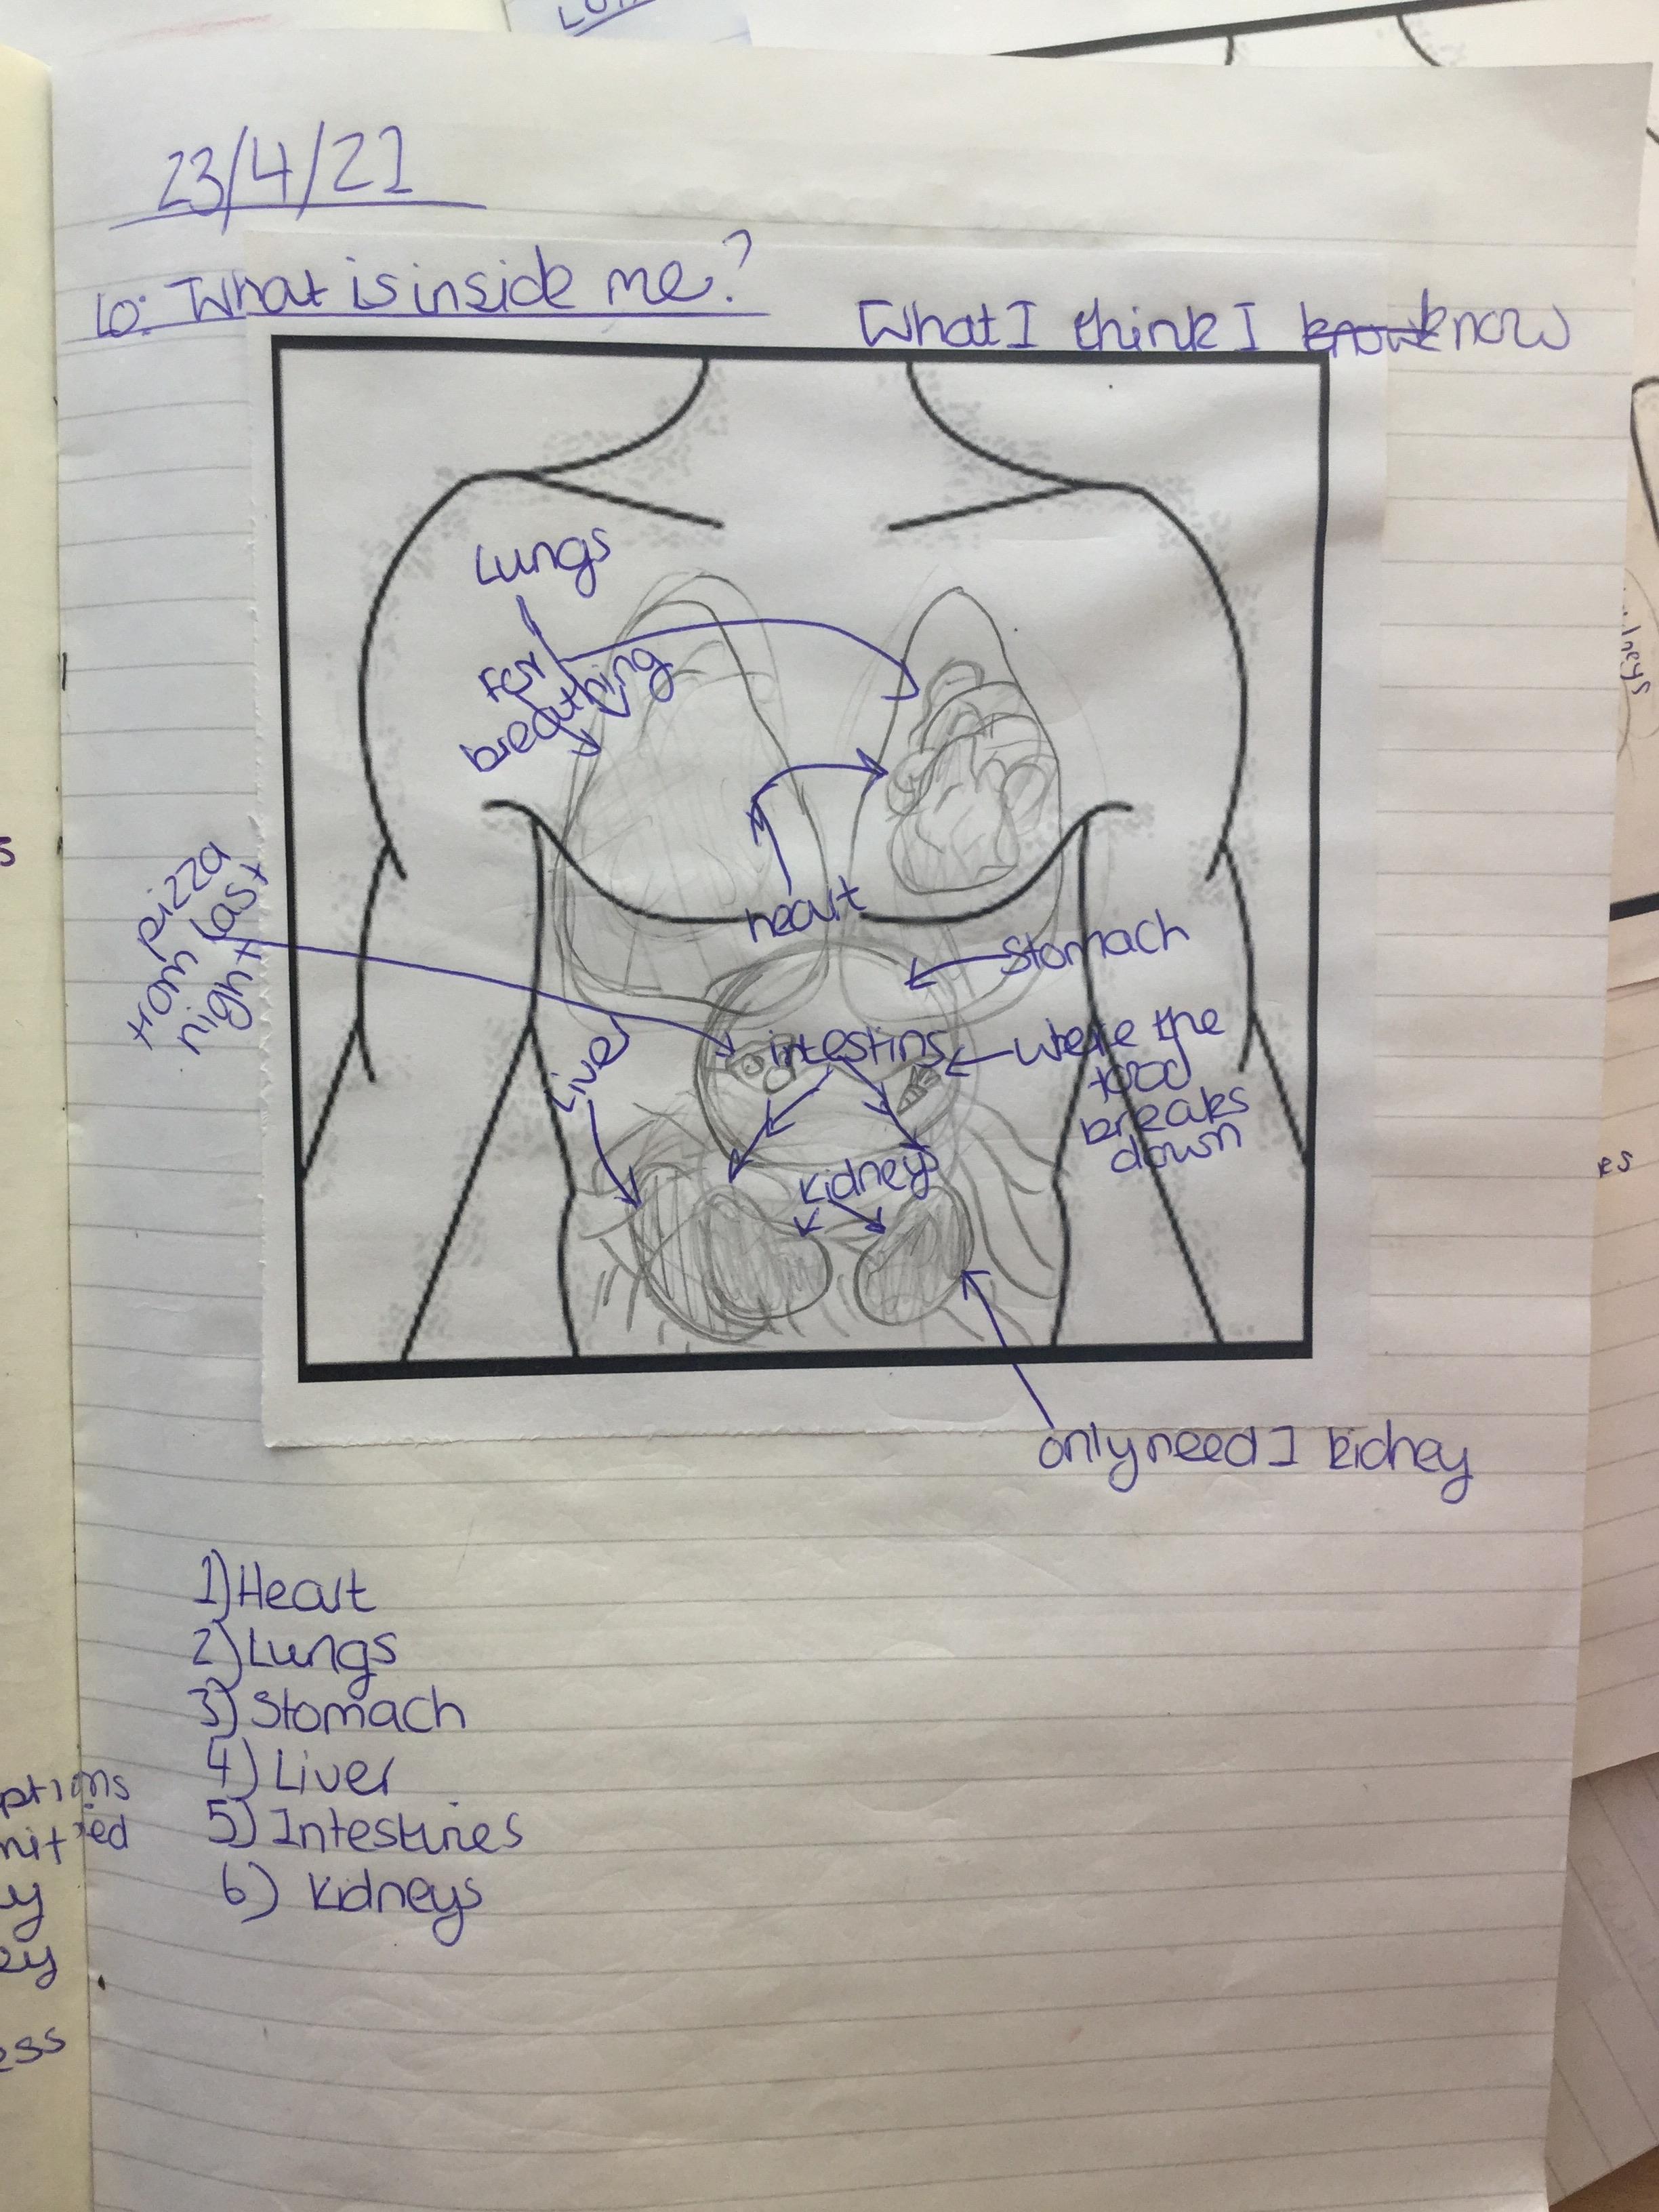 23/4/21
LO: What is inside me?
What I think I know know
Lungs
For
breathing
heart
pizza
from last
night
Stomach
intestins
Where the
food
breaks
down
Liver
kidneys
only need 1 kidney
1) Heart
2) Lungs
3) Stomach
4) Liver
5) Intestines
6) Kidneys